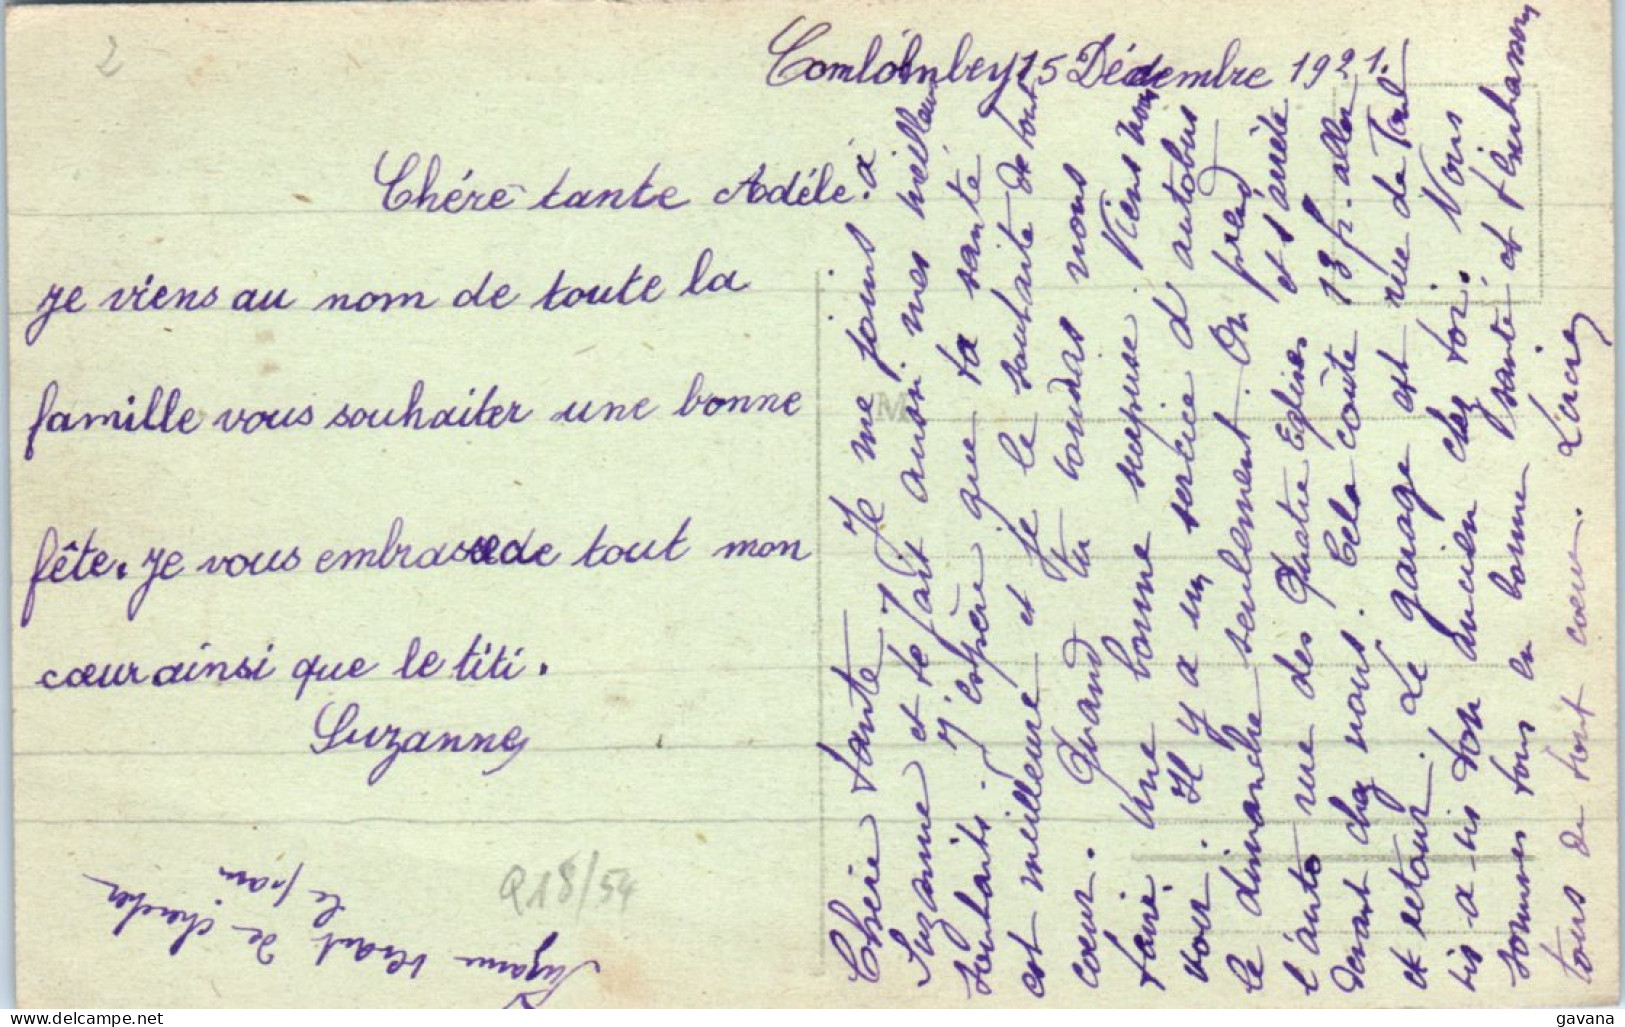 2
15 Décembre 1921.
Chére tante Adéle.
Je viens au nom de toute la
famille vous souhaiter une bonne
fête. Je vous embrasse de tout mon
cœur ainsi que le titi.
Suzanne
Suzanne venant de chercher
le pain
Q18/54
Chère tante Je me joins à
Suzanne et te fait aussi mes meilleurs
souhaits. J'espère que ta santé
est meilleure et je le souhaite de tout
cœur. Quand tu voudras nous
faire une bonne surprise. Viens nous
voir. Il y a un service d'autobus
le dimanche seulement. On prend
l'auto rue des Quatre Eglises et s'arrête
devant chez nous. Cela coûte 13 fr. aller
et retour. Le garage est rue de Toul
vis-a-vis ton ancien chez toi. Nous
sommes tous en bonne santé et t'embrassons
tous de tout cœur. Lucie
gavana
www.delcampe.net